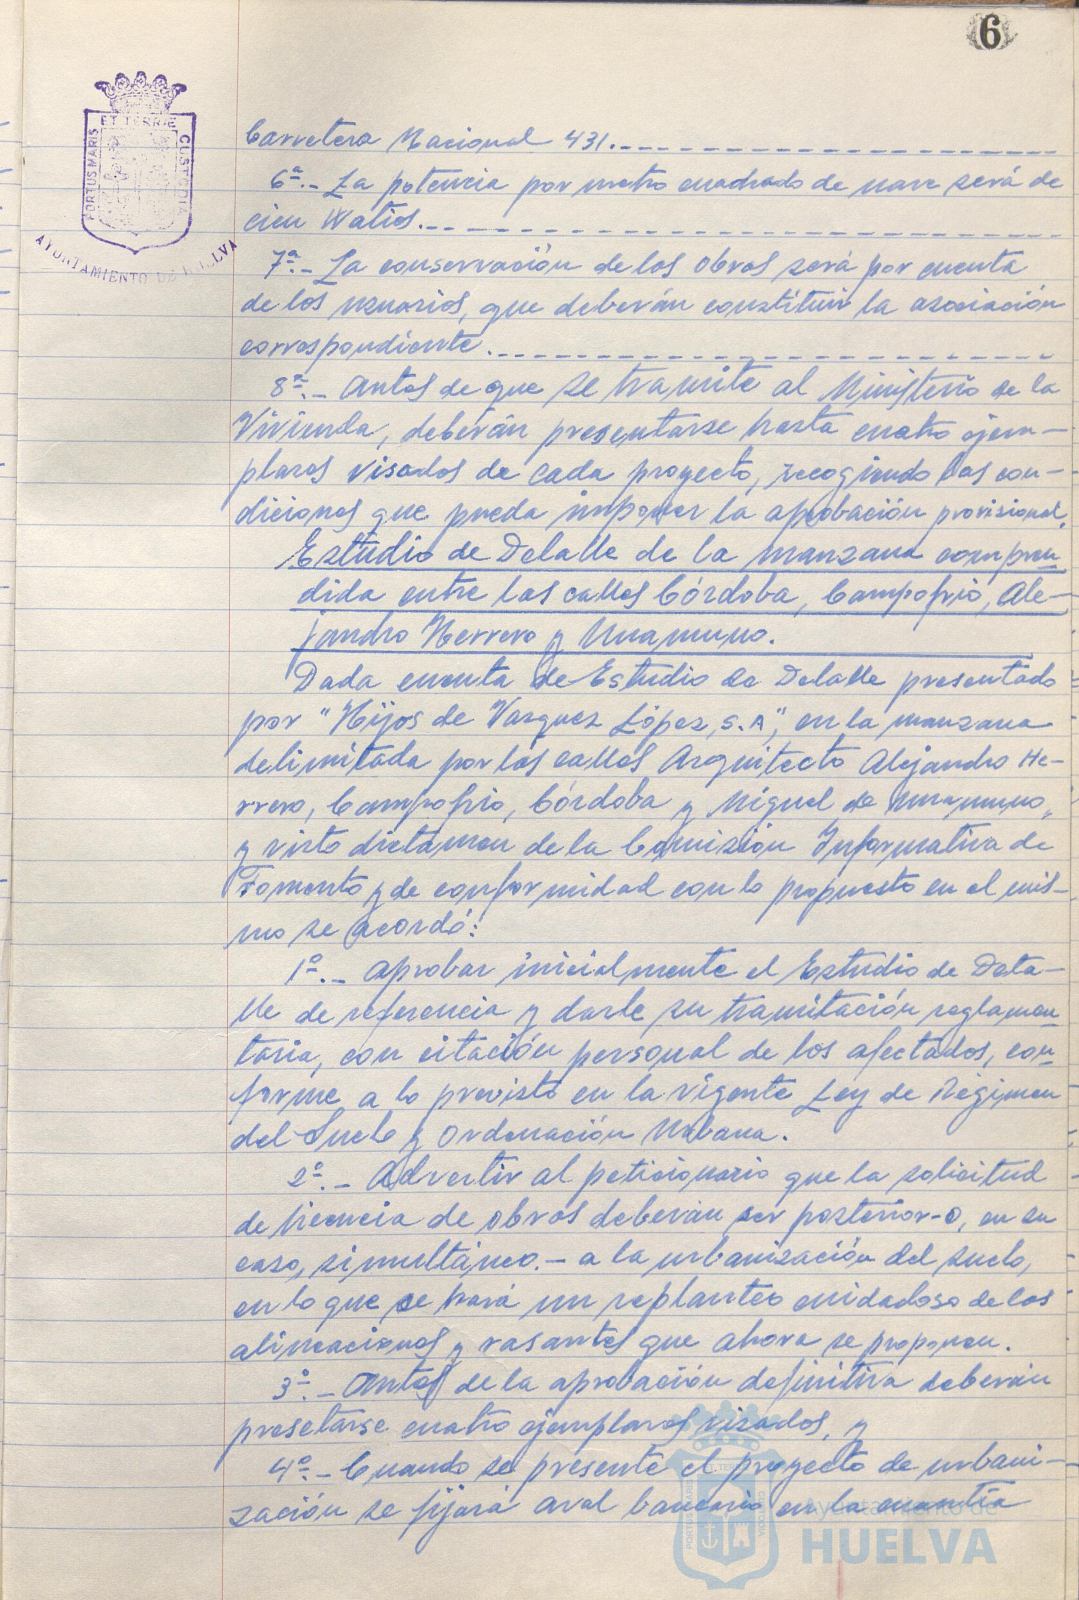 6
ET TERRÆ
PORTUS MARIS
CUSTODIA
AYUNTAMIENTO DE HUELVA
Carretera Nacional 431.
6ª.- La potencia por metro cuadrado de nave será de
cien Watios.
7ª.- La conservación de las obras será por cuenta
de los usuarios, que deberán constituir la asociación
correspondiente.
8ª.- Antes de que se tramite al Ministerio de la
Vivienda, deberán presentarse hasta cuatro ejem-
plares visados de cada proyecto, recogiendo las con-
diciones que pueda imponer la aprobación provisional.
Estudio de Detalle de la manzana compren-
dida entre las calles Córdoba, Campofrío, Ale-
jandro Herrero y Unamuno.
Dada cuenta de Estudio de Detalle presentado
por "Hijos de Vazquez López, S.A", en la manzana
delimitada por las calles Arquitecto Alejandro He-
rrero, Campofrio, Córdoba y Miguel de Unamuno,
y visto dictamen de la Comisión Informativa de
Fomento y de conformidad con lo propuesto en el mis-
mo se acordó:
1º.- Aprobar inicialmente el Estudio de Deta-
lle de referencia y darle su tramitación reglamen-
taria, con citación personal de los afectados, con-
forme a lo previsto en la vigente Ley de Régimen
del Suelo y Ordenación Urbana.
2º.- Advertir al peticionario que la solicitud
de licencia de obras deberán ser posterior-o, en su
caso, simultáneo.- a la urbanización del suelo,
en lo que se hará un replanteo cuidadoso de las
alineaciones y rasantes que ahora se proponen.
3º.- Antes de la aprobación definitiva deberán
presetarse cuatro ejemplares visados, y
4º.- Cuando se presente el proyecto de urbani-
zación se fijará aval bancario en la cuantía
Ayuntamiento de
HUELVA